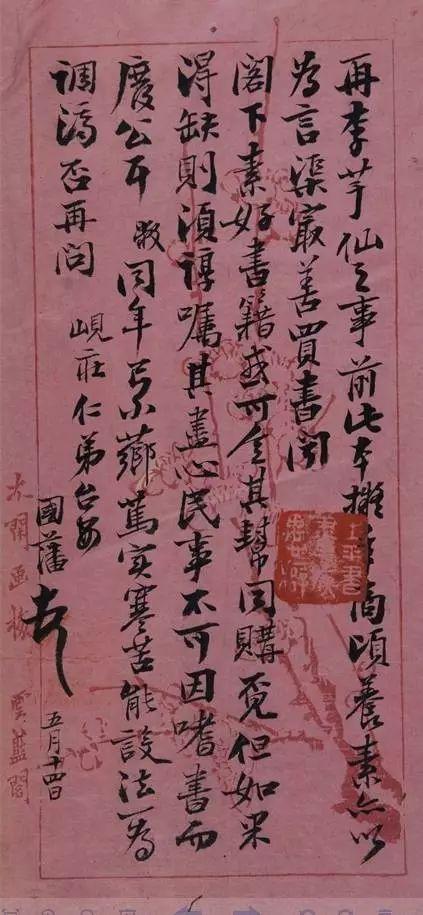 再李芋仙之事前此本擬商頃養素亦以
為言渠最善買書聞
閣下素好書籍或可令其幫同購覓但如果
得缺則須諄囑其盡心民事不可因嗜書而
廢公耳 敝同年薌篤實寒苦能設法一為
調濟否再問
峴莊仁弟台安
國藩 頓首
五月十四日
雲藍閣